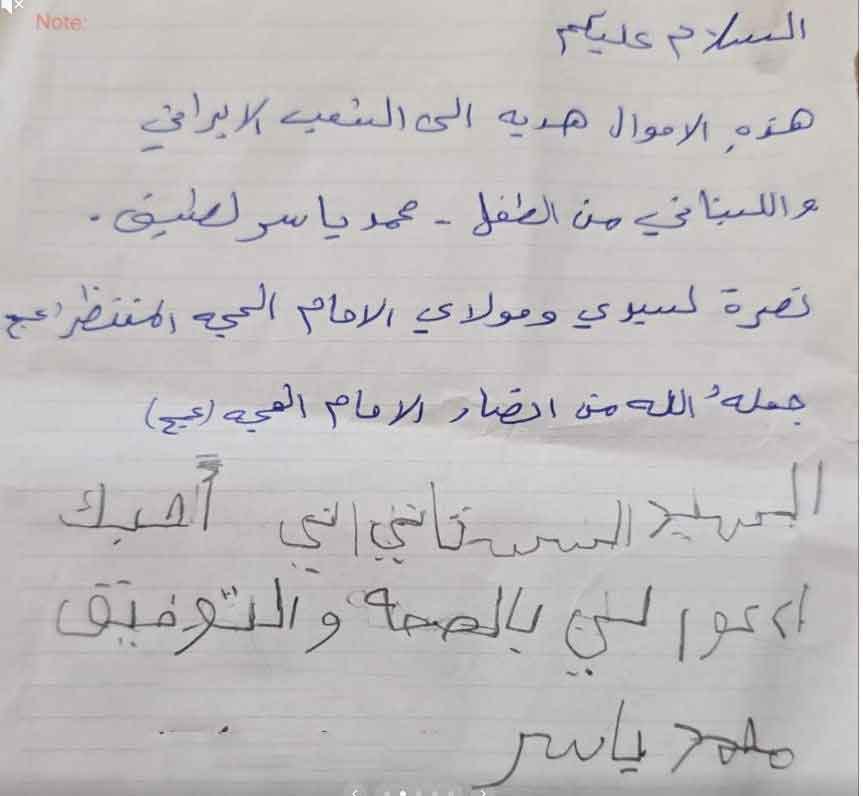 Note:
السلام عليكم
هذهِ الاموال هديه الى الشعب الايراني
واللبناني من الطفل - محمد ياسر لطيف .
نصرة لسيدي ومولاي الامام الحجه المنتظر (عج
جعلهُ الله من انصار الامام الحجه (عج)
السيد السستاني اني أحبك
ادعو لي بالصحه والتوفيق
محمد ياسر